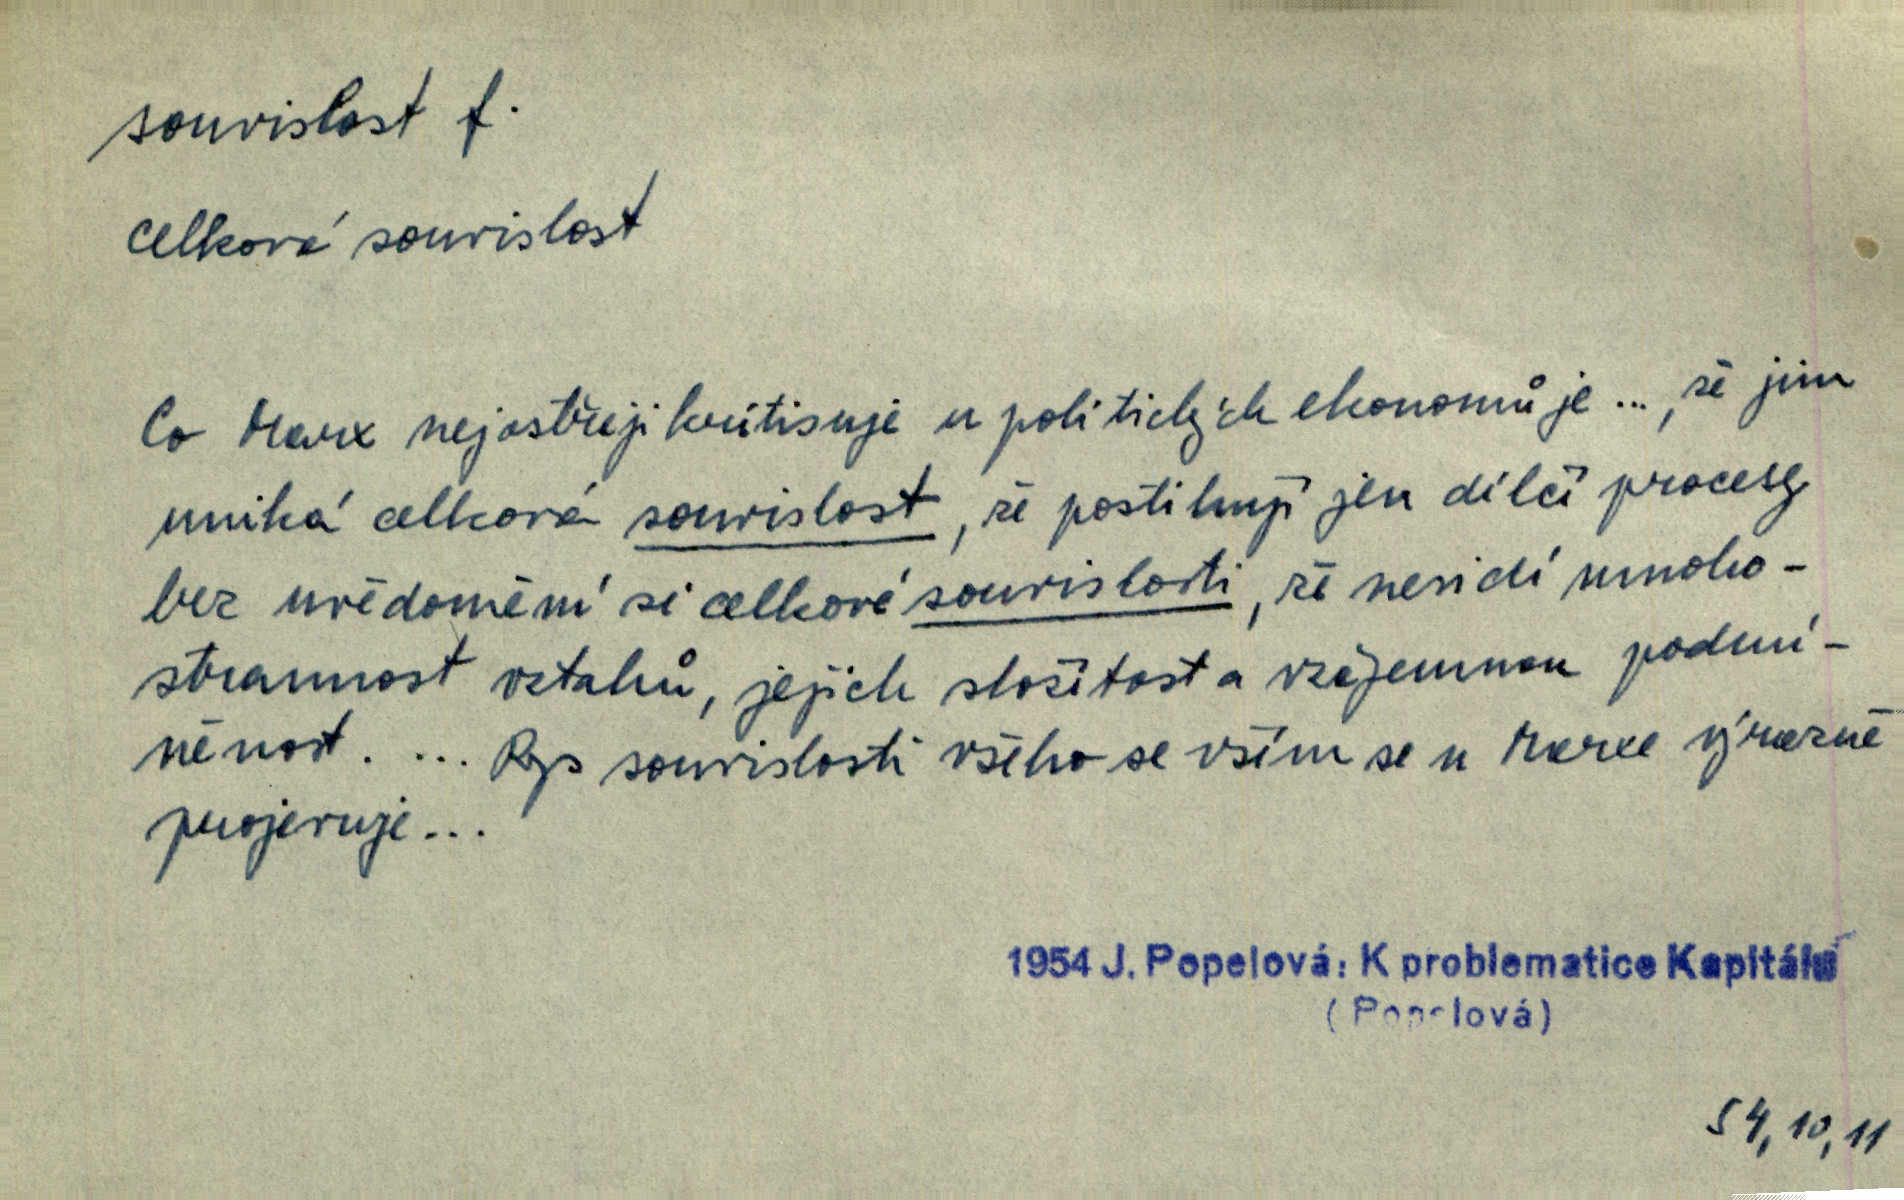 souvislost f.
celková souvislost
Co Marx nejostřeji kritisuje u politických ekonomů je ..., že jim
uniká celková souvislost, že postihují jen dílčí procesy
bez uvědomění si celkové souvislosti, že nevidí mnoho-
strannost vztahů, jejich složitost a vzájemnou podmí-
něnost. ... Rys souvislosti všeho se vším se u Marxe výrazně
projevuje...
1954 J. Popelová: K problematice Kapitálu
(Popelová)
54, 10, 11